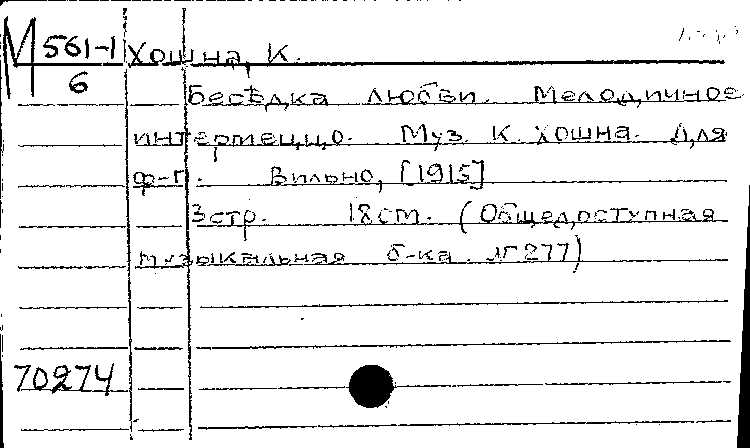 М 561-1 Хошна, К.
6
Бесѣдка любви. Мелодичное
интермеццо. Муз. К. Хошна. Для
ф-п. Вильно, [1915]
3стр. 18см. (Общедоступная
музыкальная б-ка. № 277)
70274